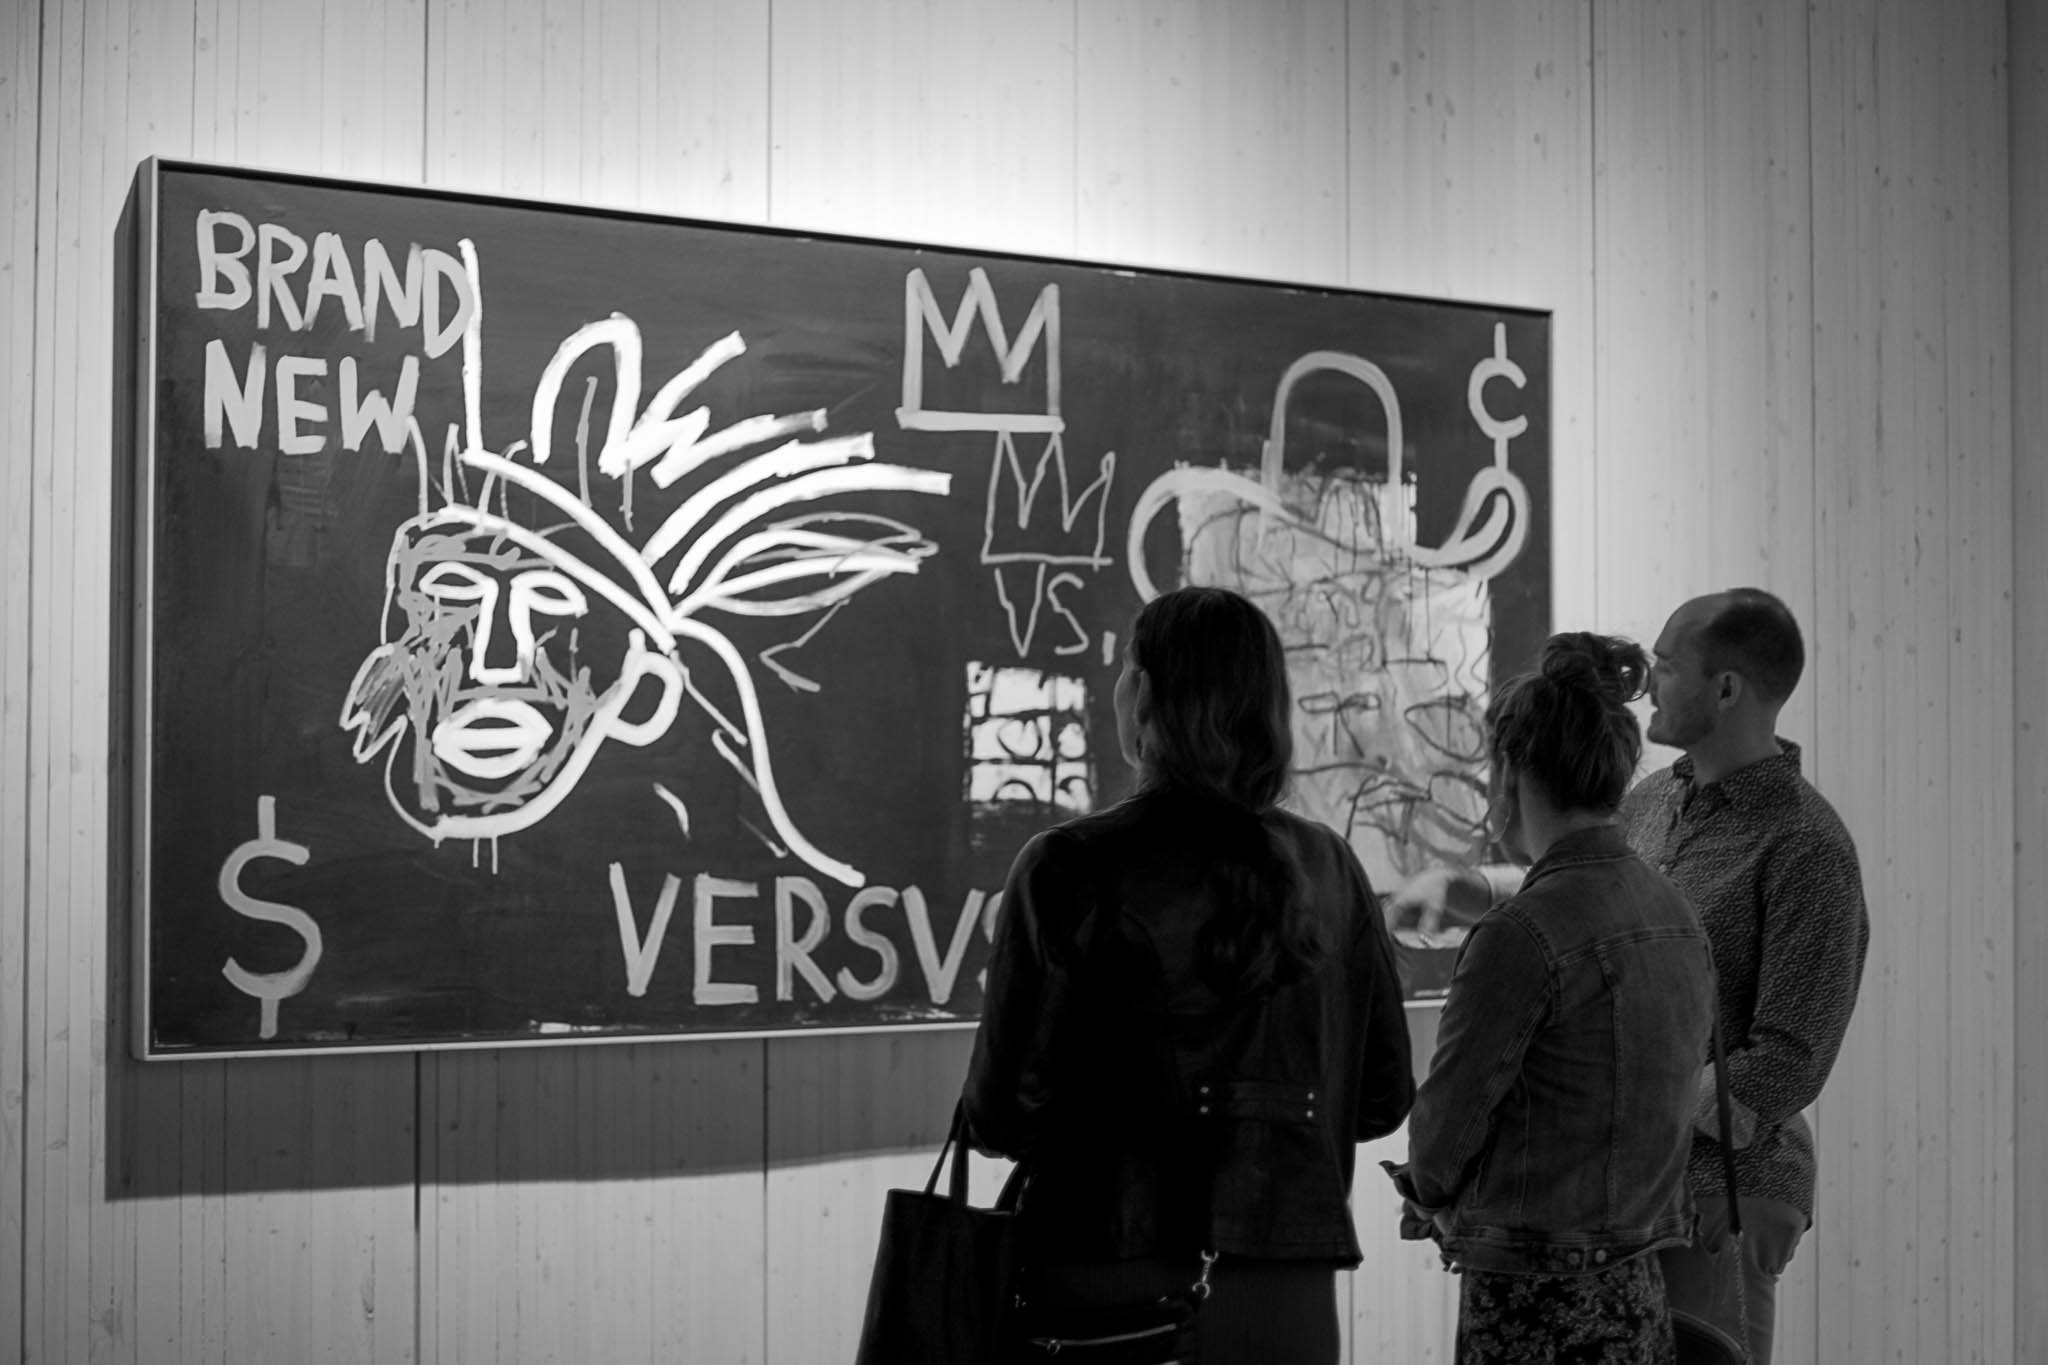 BRAND
NEW
¢
VS.
$
VERSVS